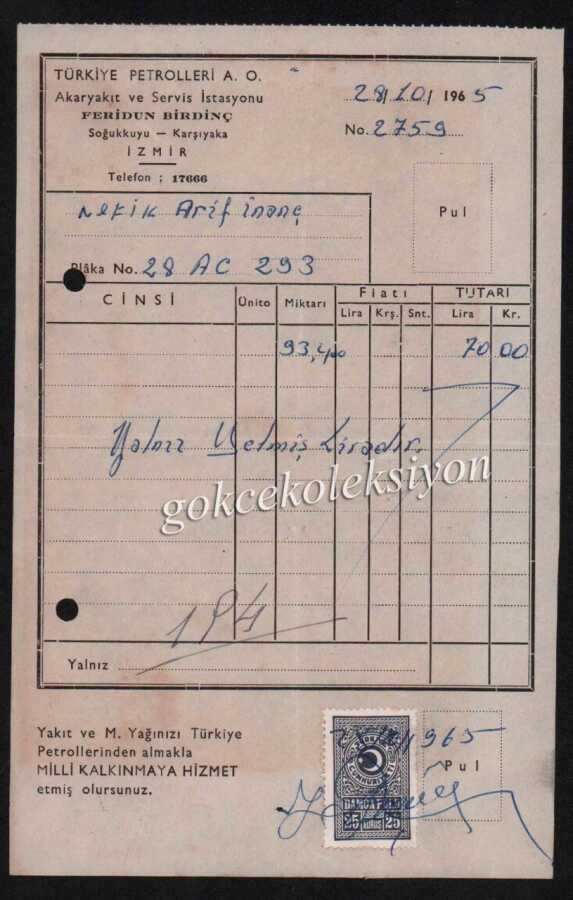 TÜRKİYE PETROLLERİ A. O.
Akaryakıt ve Servis İstasyonu
FERİDUN BİRDİNÇ
Soğukkuyu — Karşıyaka
İZMİR
Telefon : 17666
28/10/1965
No. 2759
Pul
Refik Arif İnanç
Plâka No. 28 AC 293
CİNSİ Ünite Miktarı Fiatı TUTARI
Lira Krş. Snt. Lira Kr.
93,400 70 00
Yalnız Yetmiş Liradır.
gokcekoleksiyon
Yalnız
Yakıt ve M. Yağınızı Türkiye
Petrollerinden almakla
MİLLİ KALKINMAYA HİZMET
etmiş olursunuz.
1965
Pul
TÜRKİYE
CUMHURİYETİ
DAMGA PULU
25 KURUŞ 25